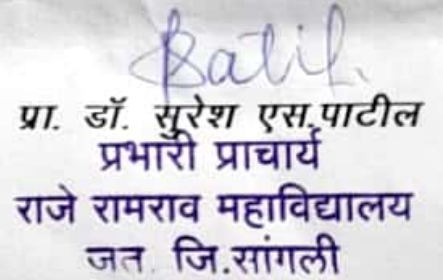 Patil.
प्रा. डॉ. सुरेश एस.पाटील
प्रभारी प्राचार्य
राजे रामराव महाविद्यालय
जत. जि.सांगली